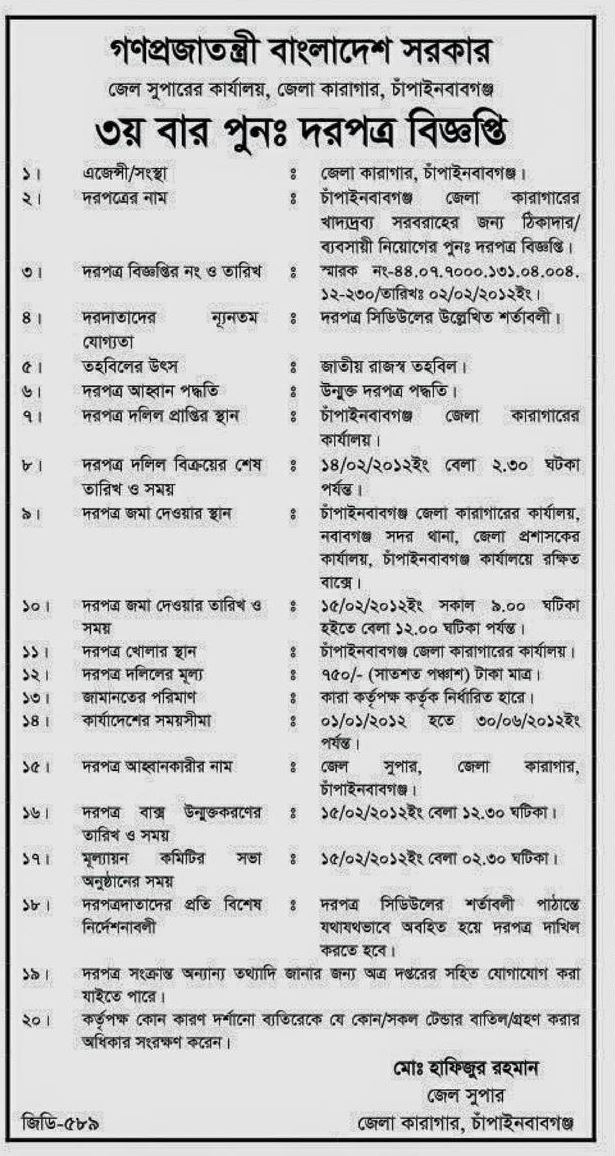 গণপ্রজাতন্ত্রী বাংলাদেশ সরকার
জেল সুপারের কার্যালয়, জেলা কারাগার, চাঁপাইনবাবগঞ্জ
৩য় বার পুনঃ দরপত্র বিজ্ঞপ্তি
১। এজেন্সী/সংস্থা ঃ জেলা কারাগার, চাঁপাইনবাবগঞ্জ।
২। দরপত্রের নাম ঃ চাঁপাইনবাবগঞ্জ জেলা কারাগারের
খাদ্যদ্রব্য সরবরাহের জন্য ঠিকাদার/
ব্যবসায়ী নিয়োগের পুনঃ দরপত্র বিজ্ঞপ্তি।
৩। দরপত্র বিজ্ঞপ্তির নং ও তারিখ ঃ স্মারক নং-৪৪.০৭.৭০০০.১৩১.০৪.০০৪.
১২-২৩০/তারিখঃ ০২/০২/২০১২ইং।
৪। দরদাতাদের ন্যূনতম ঃ দরপত্র সিডিউলের উল্লেখিত শর্তাবলী।
যোগ্যতা
৫। তহবিলের উৎস ঃ জাতীয় রাজস্ব তহবিল।
৬। দরপত্র আহ্বান পদ্ধতি ঃ উন্মুক্ত দরপত্র পদ্ধতি।
৭। দরপত্র দলিল প্রাপ্তির স্থান ঃ চাঁপাইনবাবগঞ্জ জেলা কারাগারের
কার্যালয়।
৮। দরপত্র দলিল বিক্রয়ের শেষ ঃ ১৪/০২/২০১২ইং বেলা ২.৩০ ঘটকা
তারিখ ও সময় পর্যন্ত।
৯। দরপত্র জমা দেওয়ার স্থান ঃ চাঁপাইনবাবগঞ্জ জেলা কারাগারের কার্যালয়,
নবাবগঞ্জ সদর থানা, জেলা প্রশাসকের
কার্যালয়, চাঁপাইনবাবগঞ্জ কার্যালয়ে রক্ষিত
বাক্সে।
১০। দরপত্র জমা দেওয়ার তারিখ ও ঃ ১৫/০২/২০১২ইং সকাল ৯.০০ ঘটিকা
সময় হইতে বেলা ১২.০০ ঘটিকা পর্যন্ত।
১১। দরপত্র খোলার স্থান ঃ চাঁপাইনবাবগঞ্জ জেলা কারাগারের কার্যালয়।
১২। দরপত্র দলিলের মূল্য ঃ ৭৫০/- (সাতশত পঞ্চাশ) টাকা মাত্র।
১৩। জামানতের পরিমাণ ঃ কারা কর্তৃপক্ষ কর্তৃক নির্ধারিত হারে।
১৪। কার্যাদেশের সময়সীমা ঃ ০১/০১/২০১২ হতে ৩০/০৬/২০১২ইং
পর্যন্ত।
১৫। দরপত্র আহ্বানকারীর নাম ঃ জেল সুপার, জেলা কারাগার,
চাঁপাইনবাবগঞ্জ।
১৬। দরপত্র বাক্স উন্মুক্তকরণের ঃ ১৫/০২/২০১২ইং বেলা ১২.৩০ ঘটিকা।
তারিখ ও সময়
১৭। মূল্যায়ন কমিটির সভা ঃ ১৫/০২/২০১২ইং বেলা ০২.৩০ ঘটিকা।
অনুষ্ঠানের সময়
১৮। দরপত্রদাতাদের প্রতি বিশেষ ঃ দরপত্র সিডিউলের শর্তাবলী পাঠান্তে
নির্দেশনাবলী যথাযথভাবে অবহিত হয়ে দরপত্র দাখিল
করতে হবে।
১৯। দরপত্র সংক্রান্ত অন্যান্য তথ্যাদি জানার জন্য অত্র দপ্তরের সহিত যোগাযোগ করা
যাইতে পারে।
২০। কর্তৃপক্ষ কোন কারণ দর্শানো ব্যতিরেকে যে কোন/সকল টেন্ডার বাতিল/গ্রহণ করার
অধিকার সংরক্ষণ করেন।
মোঃ হাফিজুর রহমান
জেল সুপার
জিডি-৫৮৯ জেলা কারাগার, চাঁপাইনবাবগঞ্জ